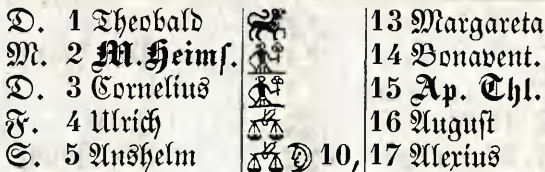 D. 1 Theobald 13 Margareta
M. 2 M. Heims. 14 Bonavent.
D. 3 Cornelius 15 Ap. Thl.
F. 4 Ulrich 16 August
S. 5 Anshelm 10, 17 Alexius